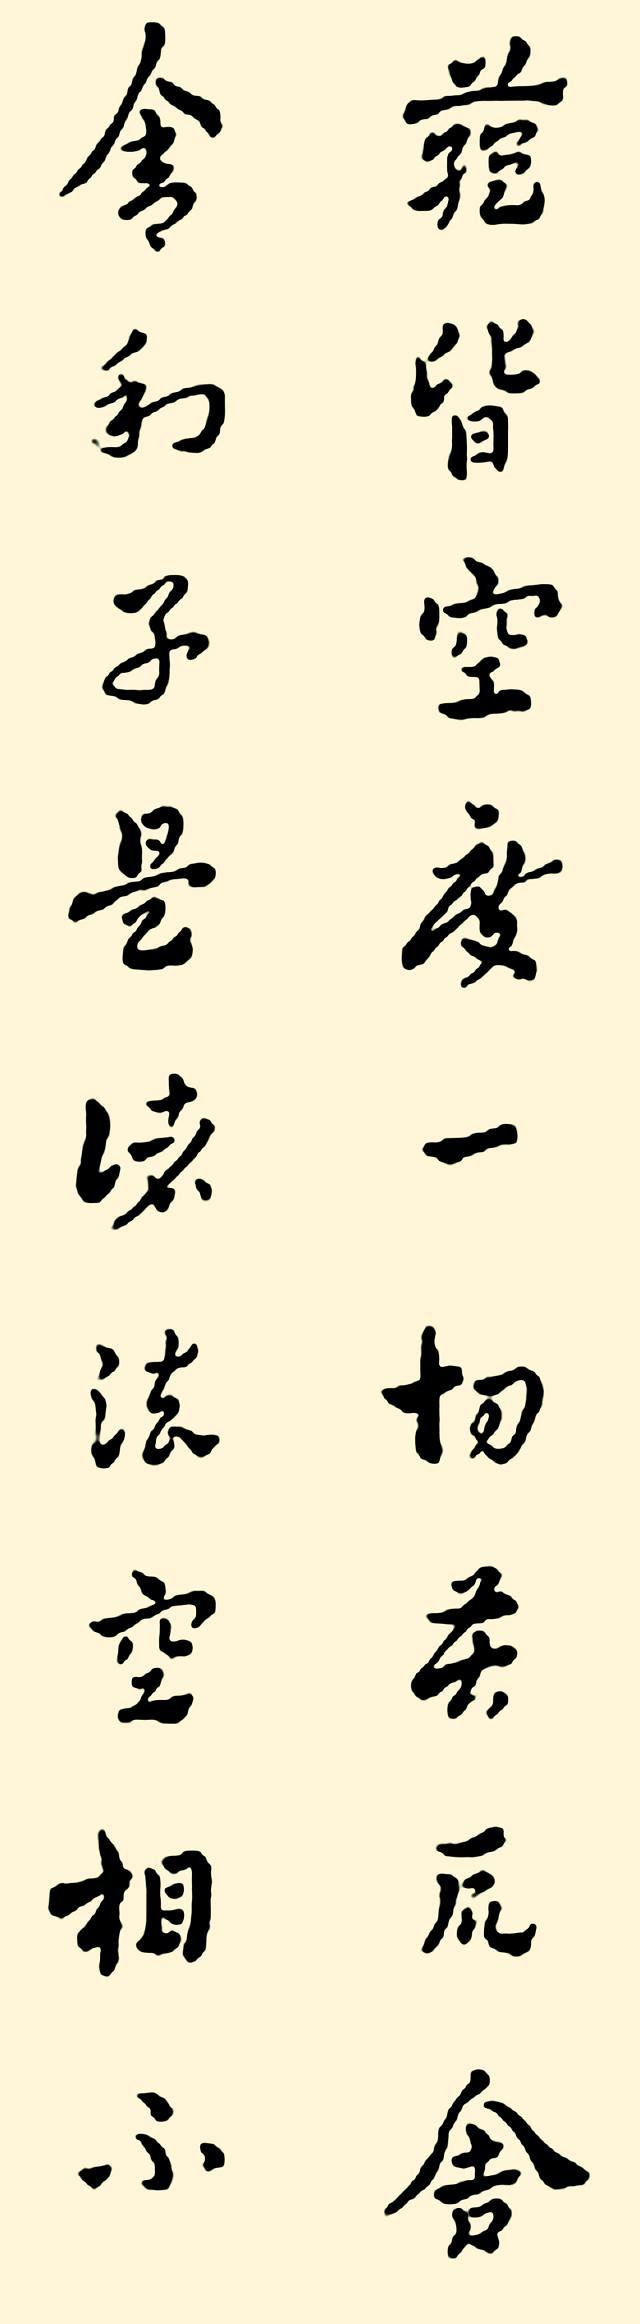 蘊皆空度一切苦厄舍
舍利子是諸法空相不